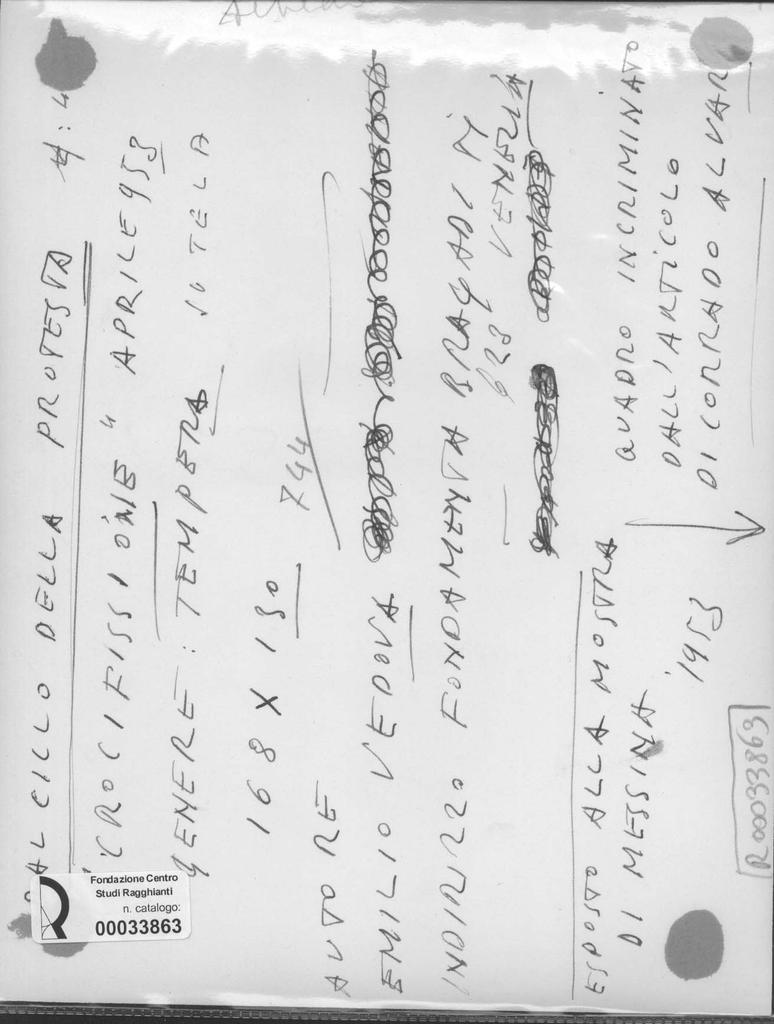 DAL CICLO DELLA PROTESTA N: 4
"CROCIFISSIONE" APRILE 953
GENERE: TEMPERA SU TELA
168 X 130
744
AUTORE
EMILIO VEDOVA
INDIRIZZO FONDAMENTA BRAGADIN
628 VENEZIA
ESPOSTO ALLA MOSTRA
DI MESSINA
1953
QUADRO INCRIMINATO
DALL'ARTICOLO
DI CORRADO ALVAR
R00033863
Fondazione Centro
Studi Ragghianti
n. catalogo:
00033863